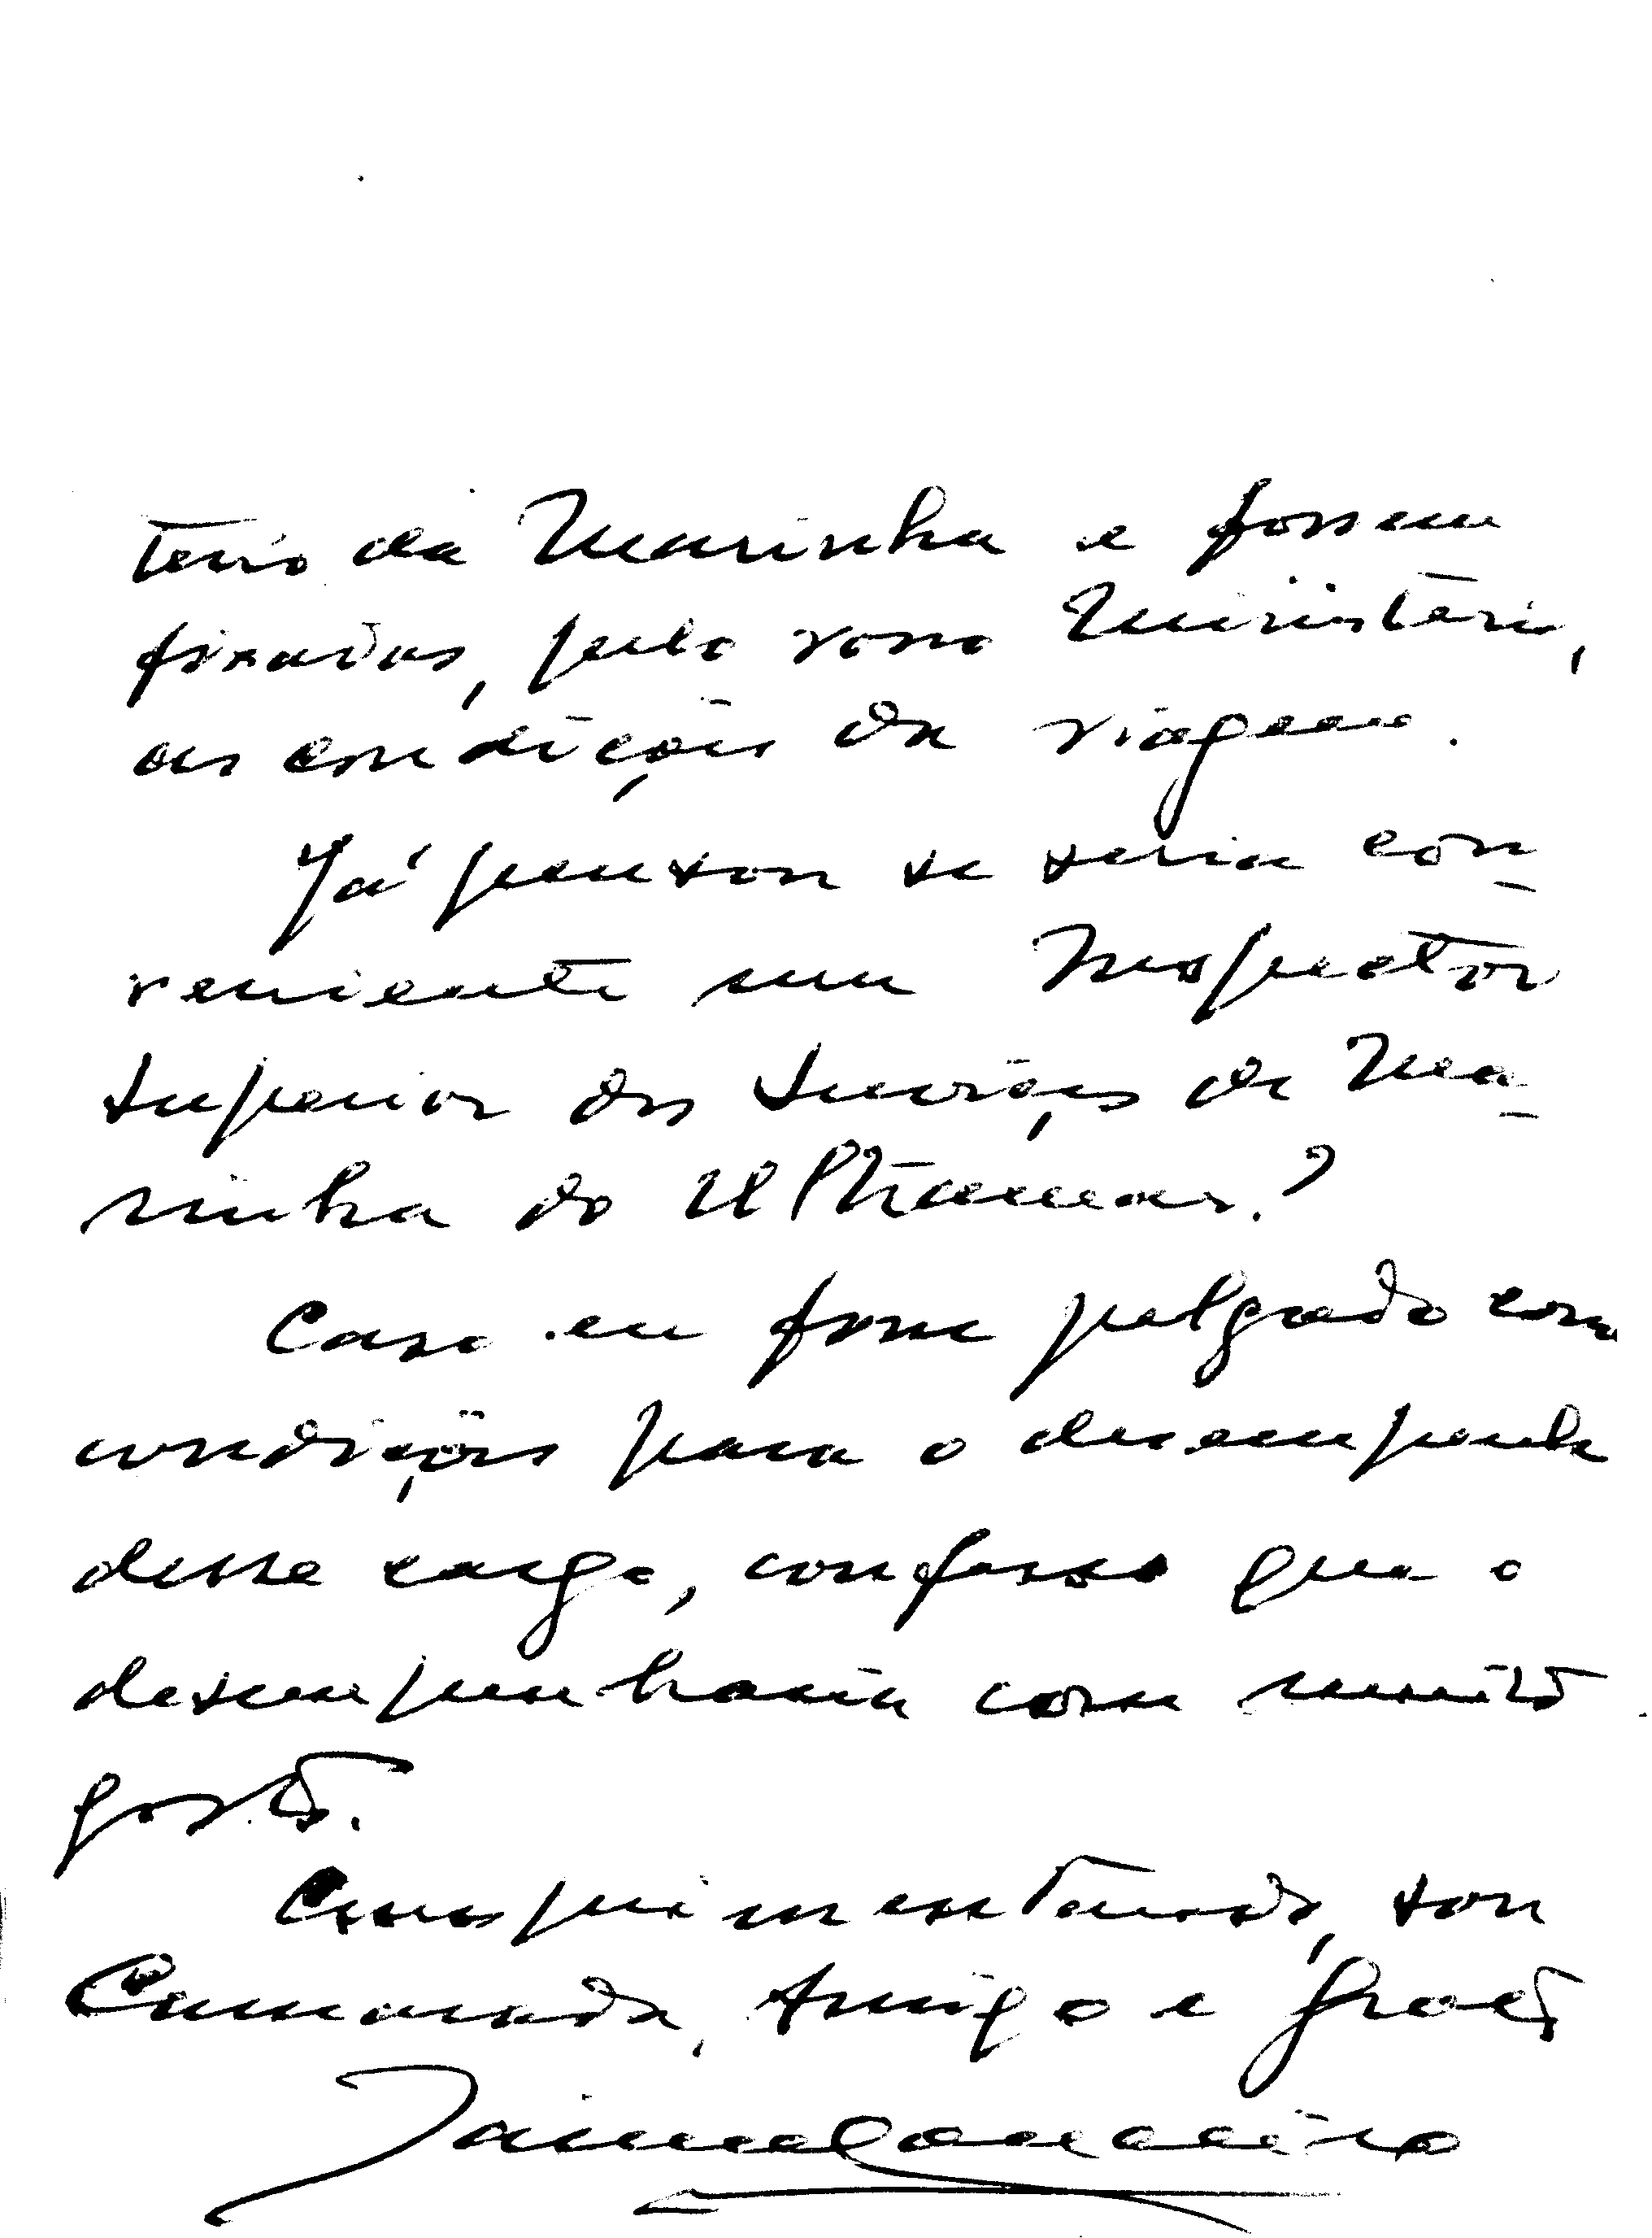 tério da Marinha e fossem
fixadas, pelo vosso Ministério,
as condições da viagem.
Já pensou se seria con-
veniente um Inspector
Superior dos Serviços de Ma-
rinha do Ultramar?
Caso eu fosse julgado com
condições para o desempenho
desse cargo, confesso que o
desempenharia com muito
gosto.
Cumprimentando, sou
Camarada, Amigo e Grato
Jaime